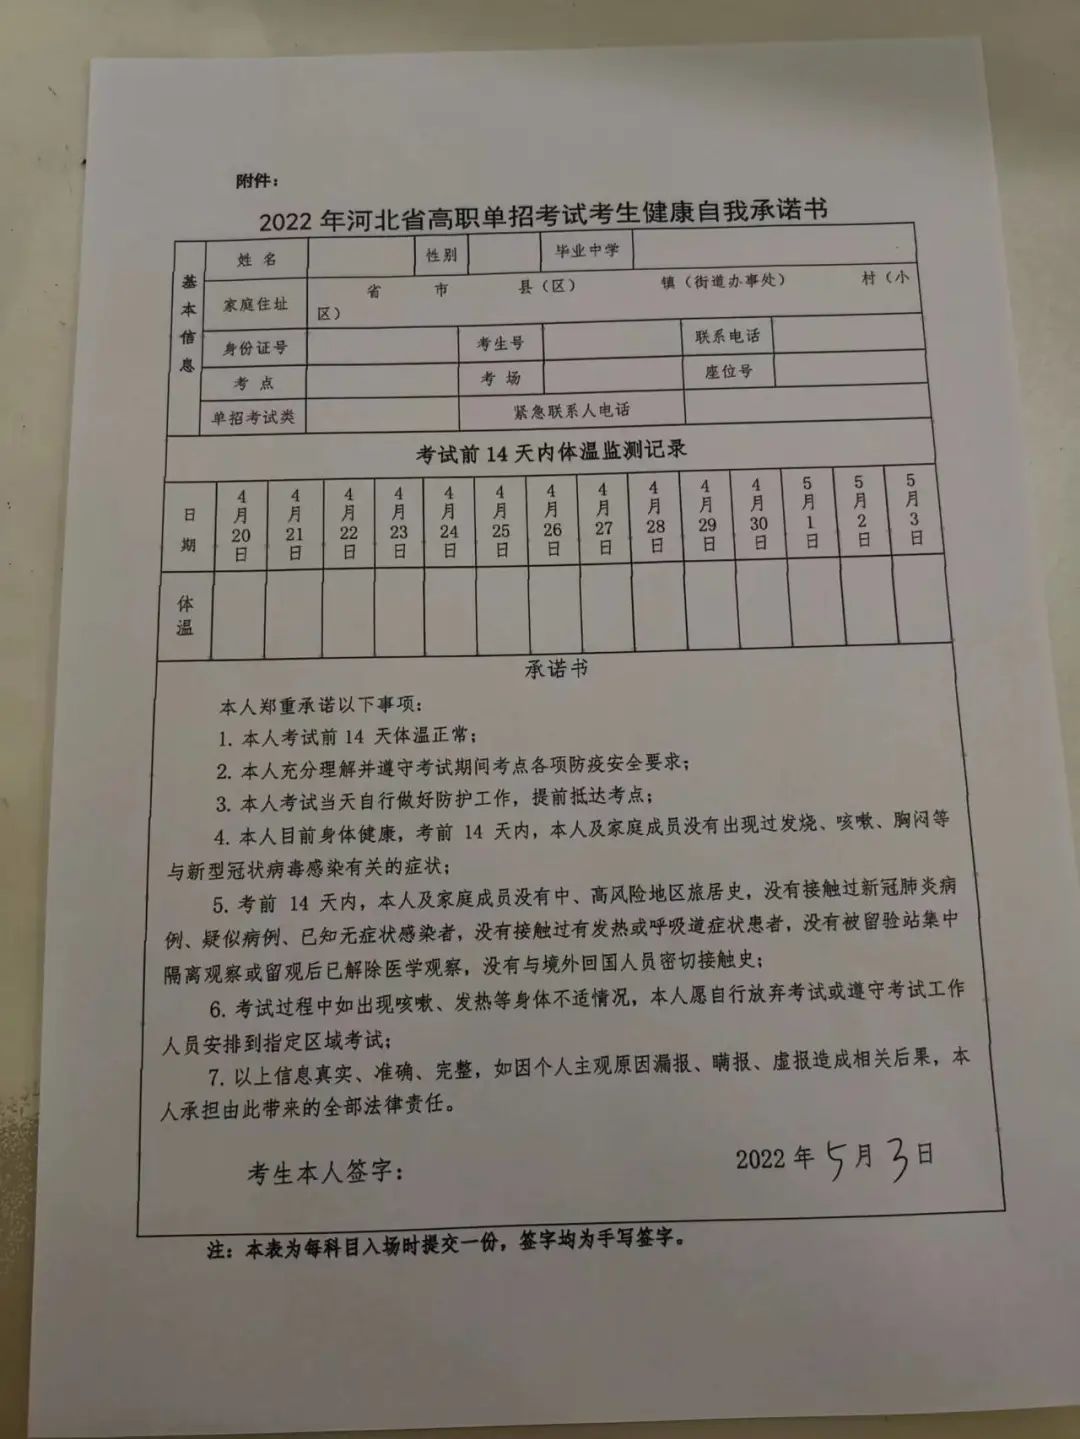 附件：
2022 年河北省高职单招考试考生健康自我承诺书
基本信息
姓 名 性别 毕业中学
家庭住址 省 市 县（区） 镇（街道办事处） 村（小
区）
身份证号 考生号 联系电话
考 点 考 场 座位号
单招考试类 紧急联系人电话
考试前 14 天内体温监测记录
日期 4月20日 4月21日 4月22日 4月23日 4月24日 4月25日 4月26日 4月27日 4月28日 4月29日 4月30日 5月1日 5月2日 5月3日
体温
承诺书
本人郑重承诺以下事项：
1. 本人考试前 14 天体温正常；
2. 本人充分理解并遵守考试期间考点各项防疫安全要求；
3. 本人考试当天自行做好防护工作，提前抵达考点；
4. 本人目前身体健康，考前 14 天内，本人及家庭成员没有出现过发烧、咳嗽、胸闷等
与新型冠状病毒感染有关的症状；
5. 考前 14 天内，本人及家庭成员没有中、高风险地区旅居史，没有接触过新冠肺炎病
例、疑似病例、已知无症状感染者，没有接触过有发热或呼吸道症状患者，没有被留验站集中
隔离观察或留观后已解除医学观察，没有与境外回国人员密切接触史；
6. 考试过程中如出现咳嗽、发热等身体不适情况，本人愿自行放弃考试或遵守考试工作
人员安排到指定区域考试；
7. 以上信息真实、准确、完整，如因个人主观原因漏报、瞒报、虚报造成相关后果，本
人承担由此带来的全部法律责任。
考生本人签字： 2022 年 5 月 3 日
注：本表为每科目入场时提交一份，签字均为手写签字。